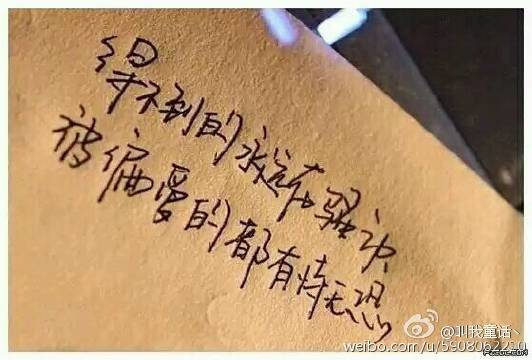 得不到的永远在骚动
被偏爱的都有恃无恐
叫我童话丶
weibo.com/u/5908062220